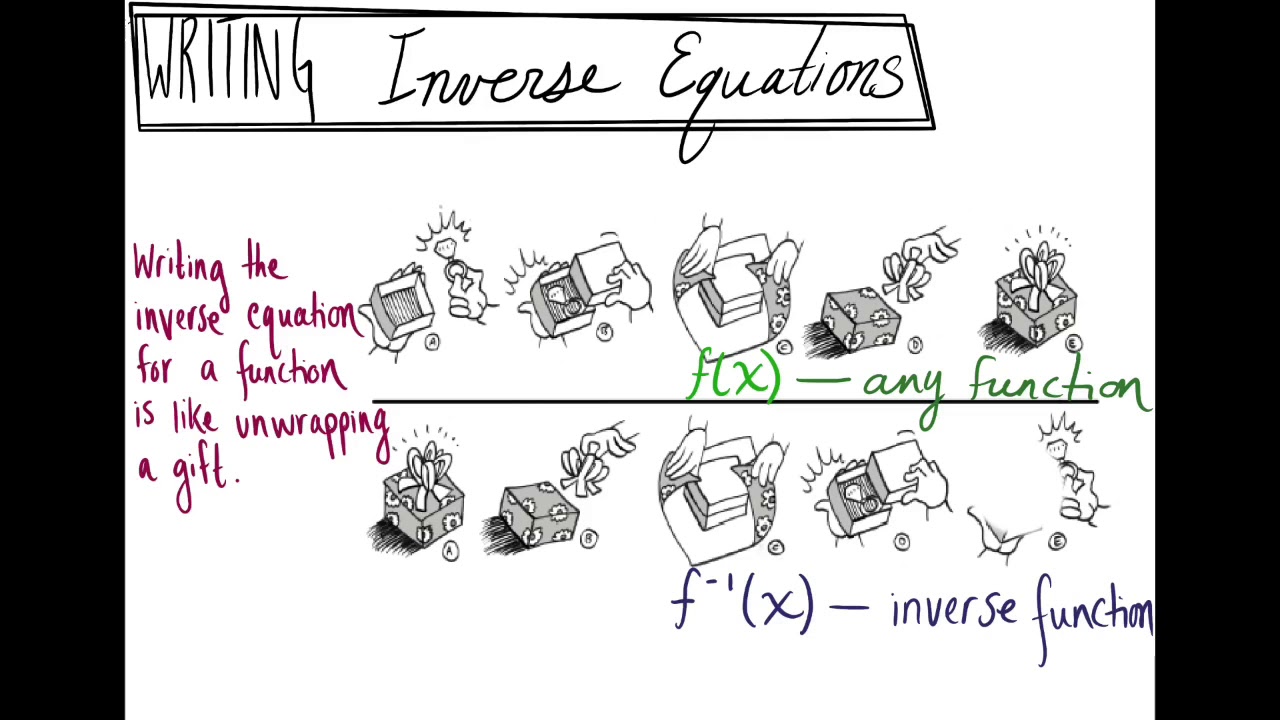 WRITING Inverse Equations
Writing the
inverse equation
for a function
is like unwrapping
a gift.
A B C D E
f(x) — any function
A B C D E
f⁻¹(x) — inverse function